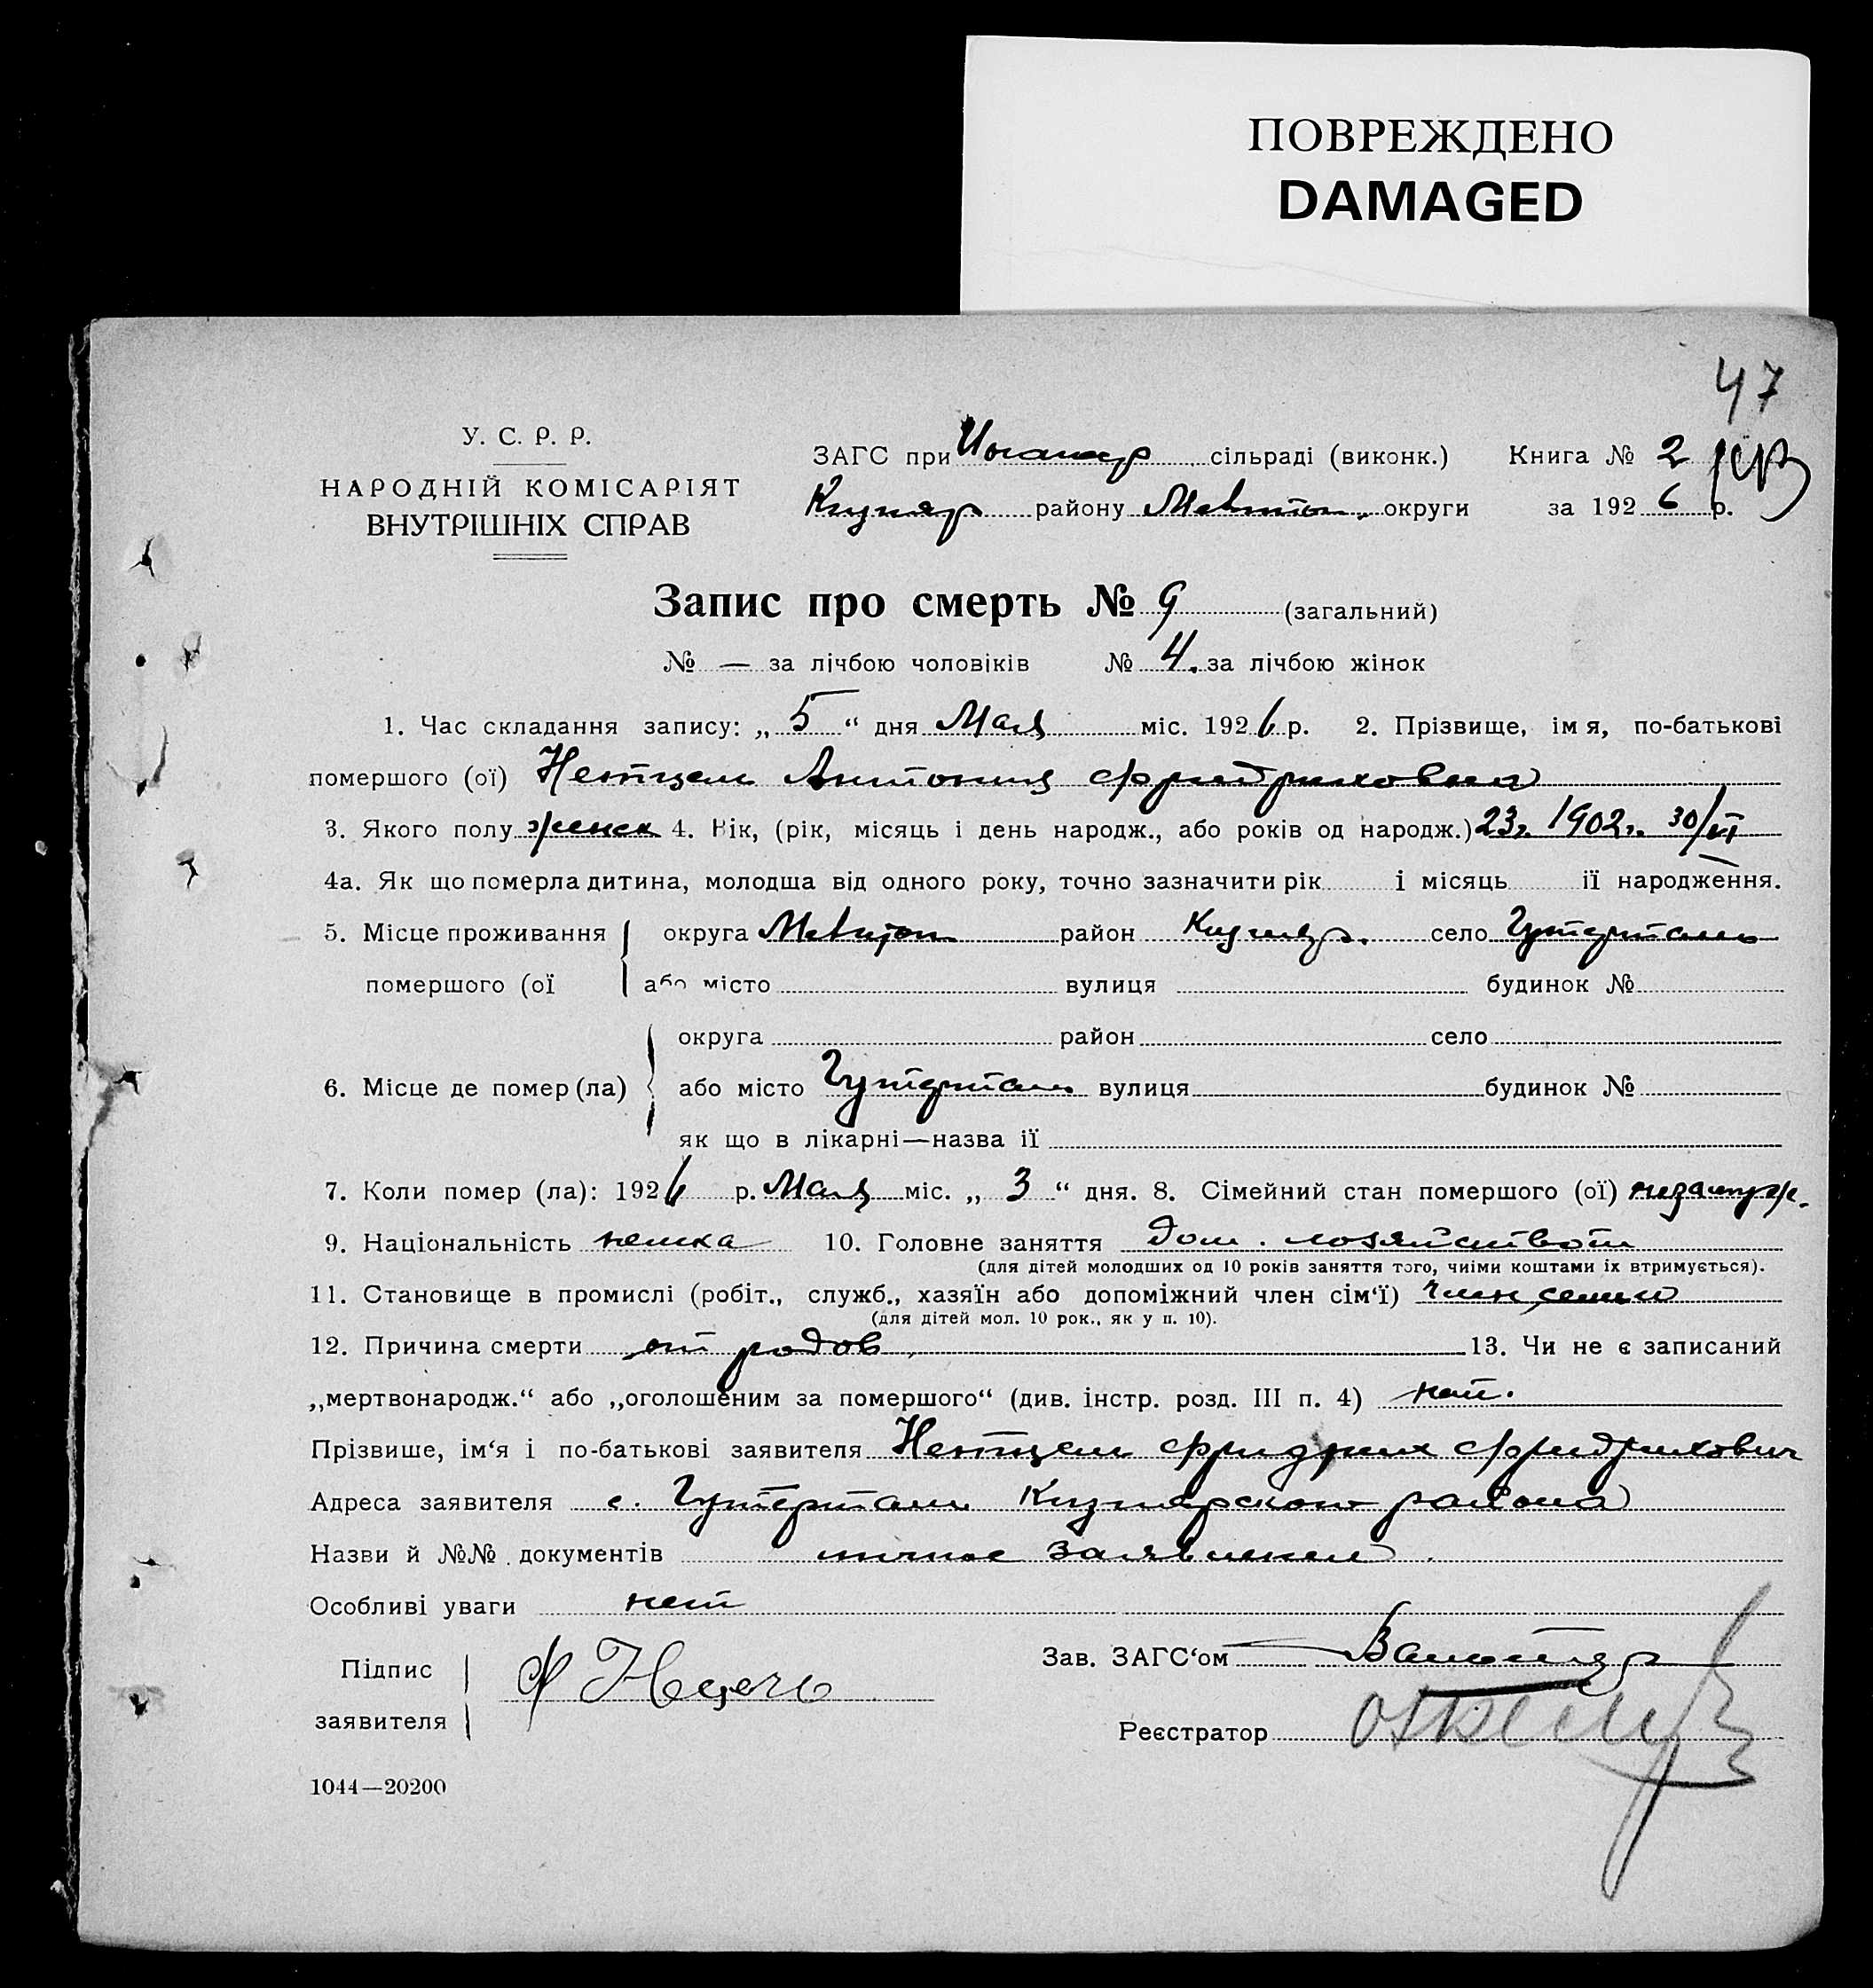 ПОВРЕЖДЕНО
DAMAGED
47
У. С. Р. Р.
НАРОДНІЙ КОМІСАРІЯТ
ВНУТРІШНІХ СПРАВ
ЗАГС при сільраді (виконк.) Книга № 2
району округи за 1926 р.
Запис про смерть № 9 (загальний)
№ — за лічбою чоловіків № 4. за лічбою жінок
1. Час складання запису: „5“ дня Мая міс. 1926 р. 2. Прізвище, імя, по-батькові
помершого (ої) Нетцель Антония Фридриховна
3. Якого полу женск 4. Вік, (рік, місяць і день народж., або років од народж.) 23г. 1902г. 30/VI
4а. Як що померла дитина, молодша від одного року, точно зазначити рік і місяць ії народження.
5. Місце проживання округа Мелитоп район село Гутерталь
помершого (ої або місто вулиця будинок №
округа район село
6. Місце де помер (ла) або місто Гутерталь вулиця будинок №
як що в лікарні—назва ії
7. Коли помер (ла): 1926 р. Мая міс. „3“ дня. 8. Сімейний стан помершого (ої) незамуж.
9. Національність немка 10. Головне заняття дом. хозяйством
(для дітей молодших од 10 років заняття того, чиїми коштами їх втримується).
11. Становище в промислі (робіт., служб., хазяїн або допоміжний член сім‘ї) член семьи
(для дітей мол. 10 рок., як у п. 10).
12. Причина смерти от родов 13. Чи не є записаний
„мертвонародж.“ або „оголошеним за помершого“ (див. інстр. розд. III п. 4) нет.
Прізвише, ім‘я і по-батькові заявителя Нетцель Фридрих Фридрихович
Адреса заявителя с. Гутерталь района
Назви й №№ документів личное заявление
Особливі уваги нет
Підпис Ф Нецель Зав. ЗАГС‘ом
заявителя
Реєстратор
1044—20200